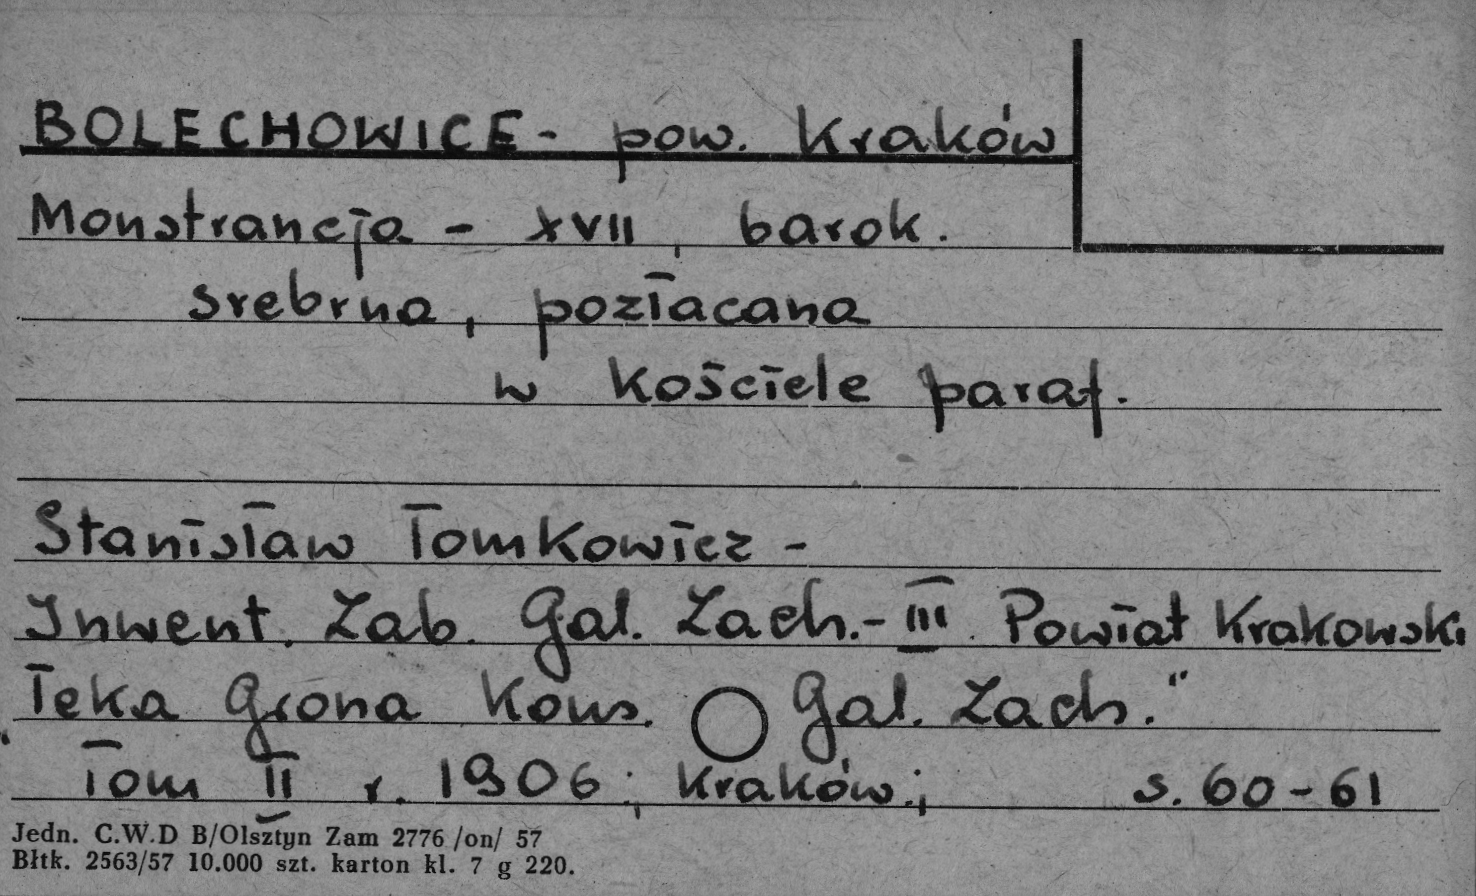 BOLECHOWICE - pow. Kraków
Monstrancja - XVII, barok.
srebrna, pozłacana
w kościele paraf.
Stanisław Tomkowicz -
Inwent. Zab. Gal. Zach. - III. Powiat Krakowski
"Teka Grona Kons. Gal. Zach."
Tom II r. 1906; Kraków; s. 60-61
Jedn. C.W.D B/Olsztyn Zam 2776 /on/ 57
Błtk. 2563/57 10.000 szt. karton kl. 7 g 220.